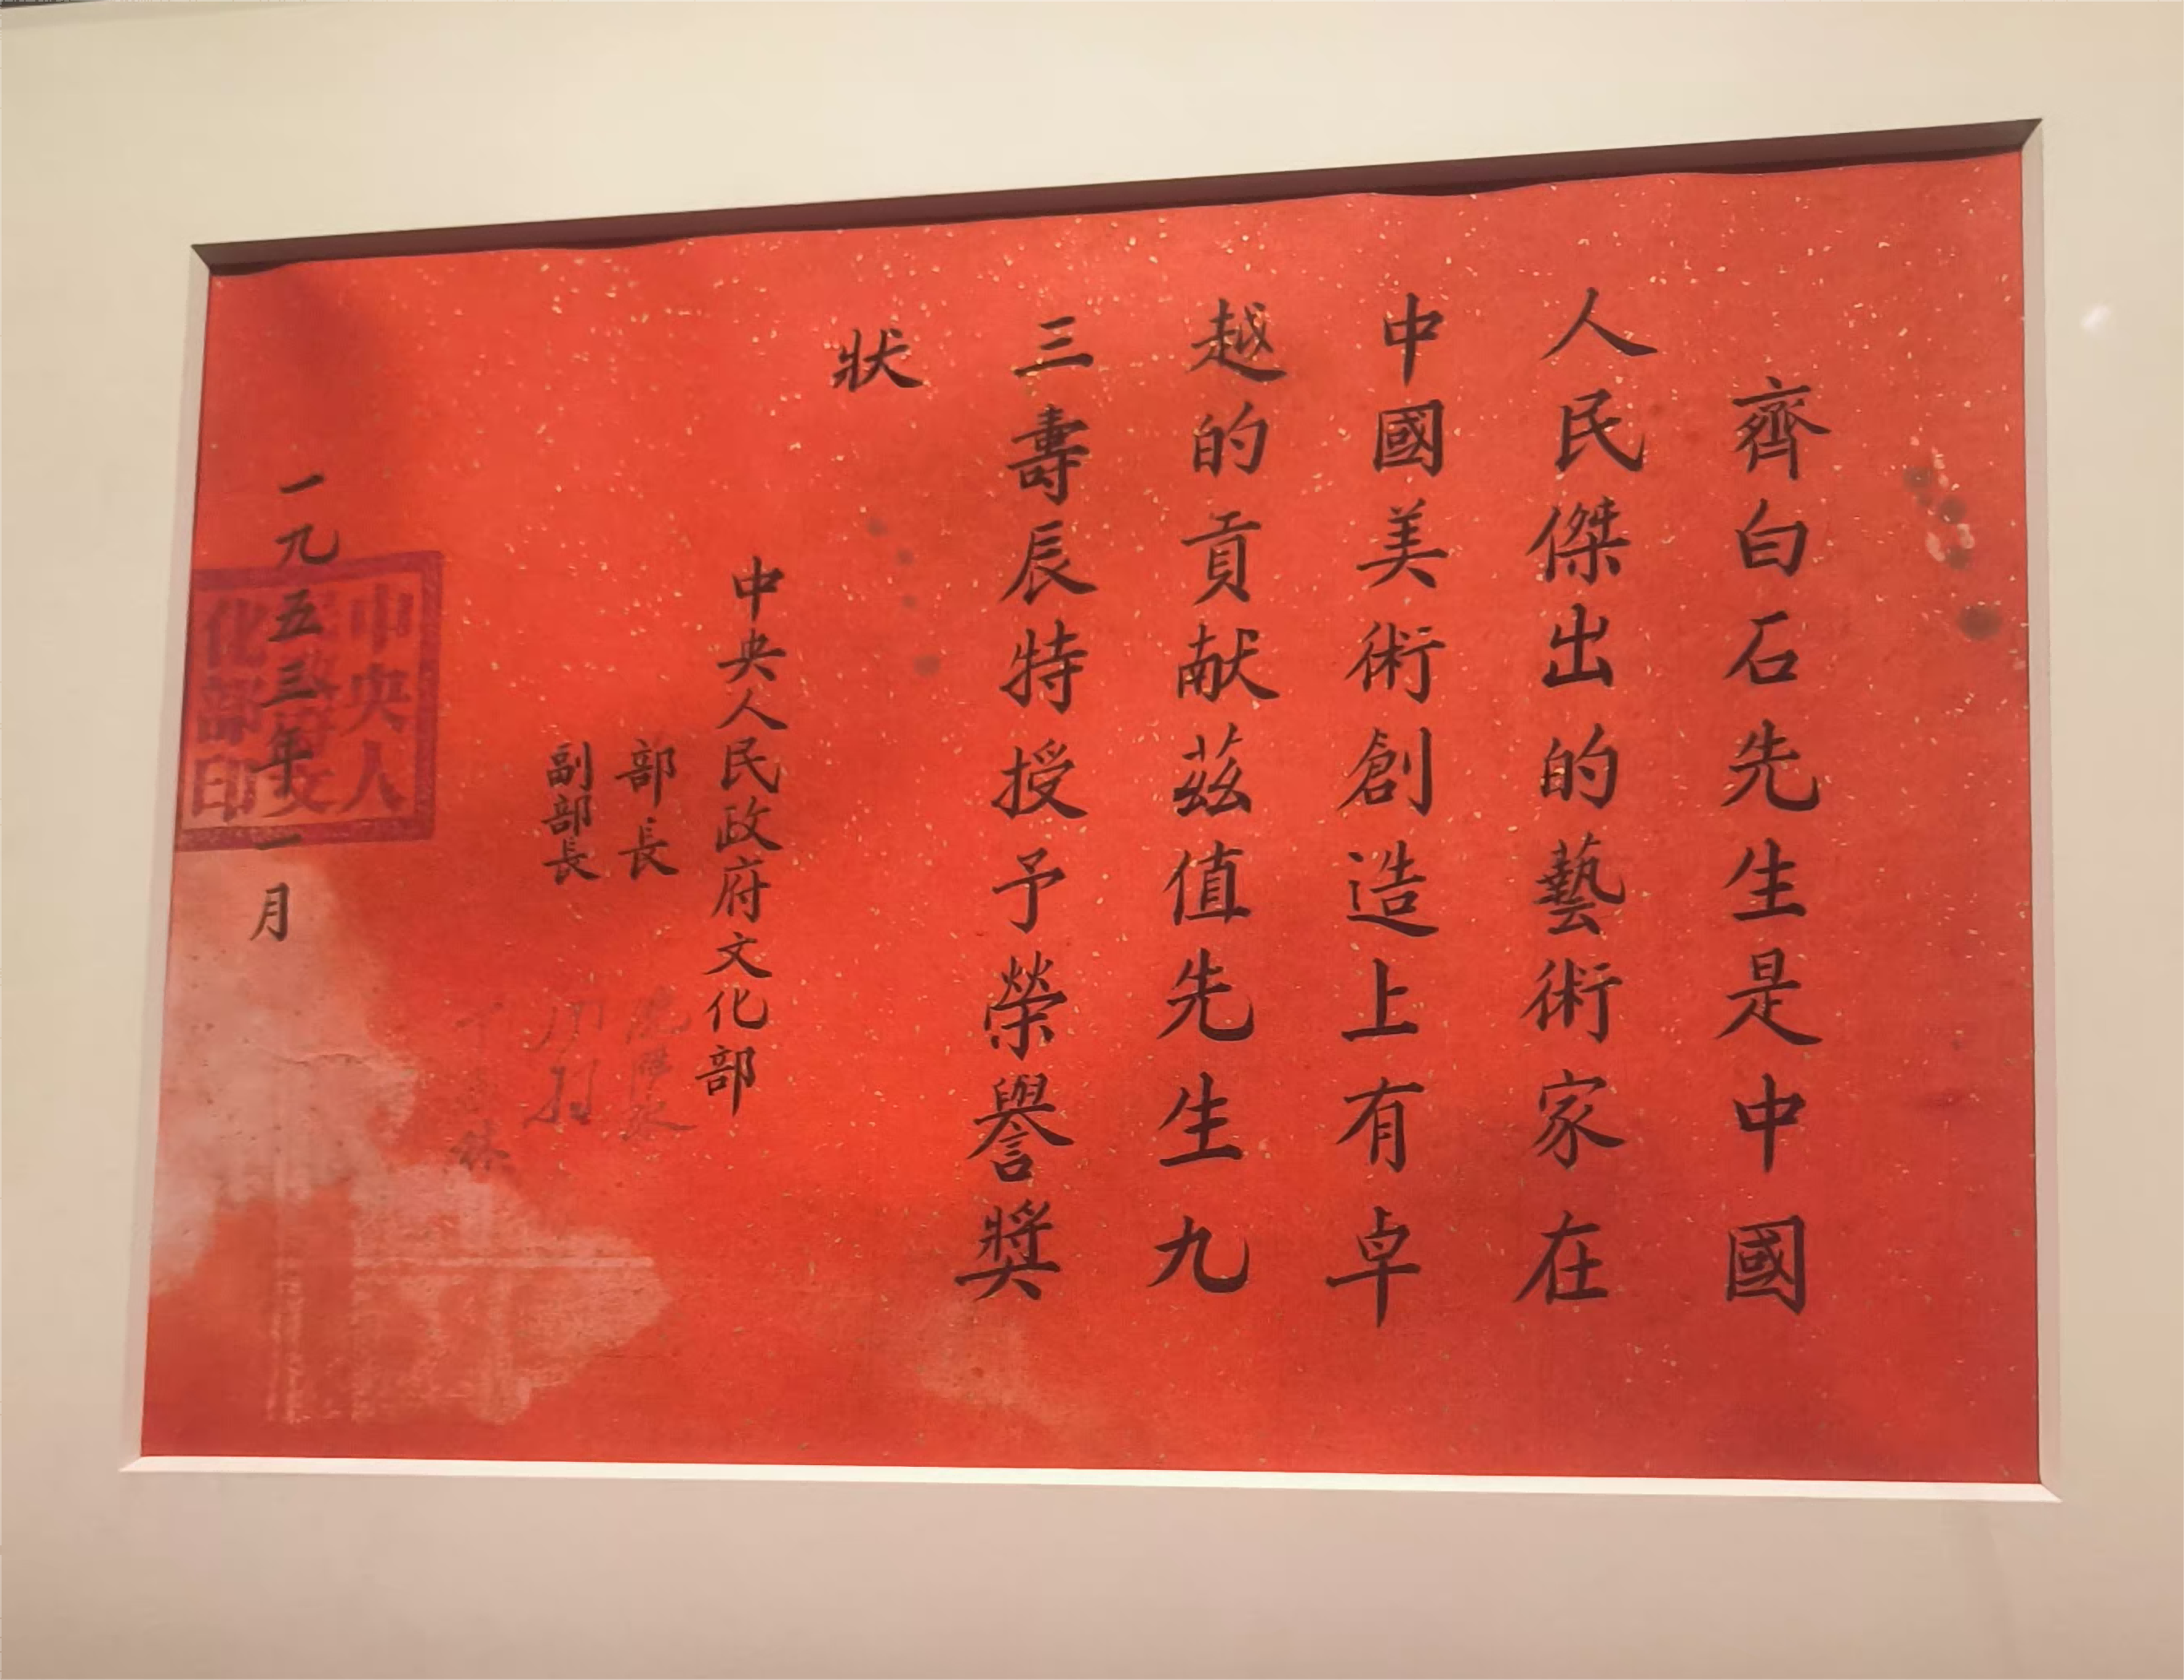 齊白石先生是中國
人民傑出的藝術家在
中國美術創造上有卓
越的貢献茲值先生九
三壽辰特授予榮譽獎
狀
中央人民政府文化部
部長
副部長
一九五三年一月
中央人
民政府文
化部印